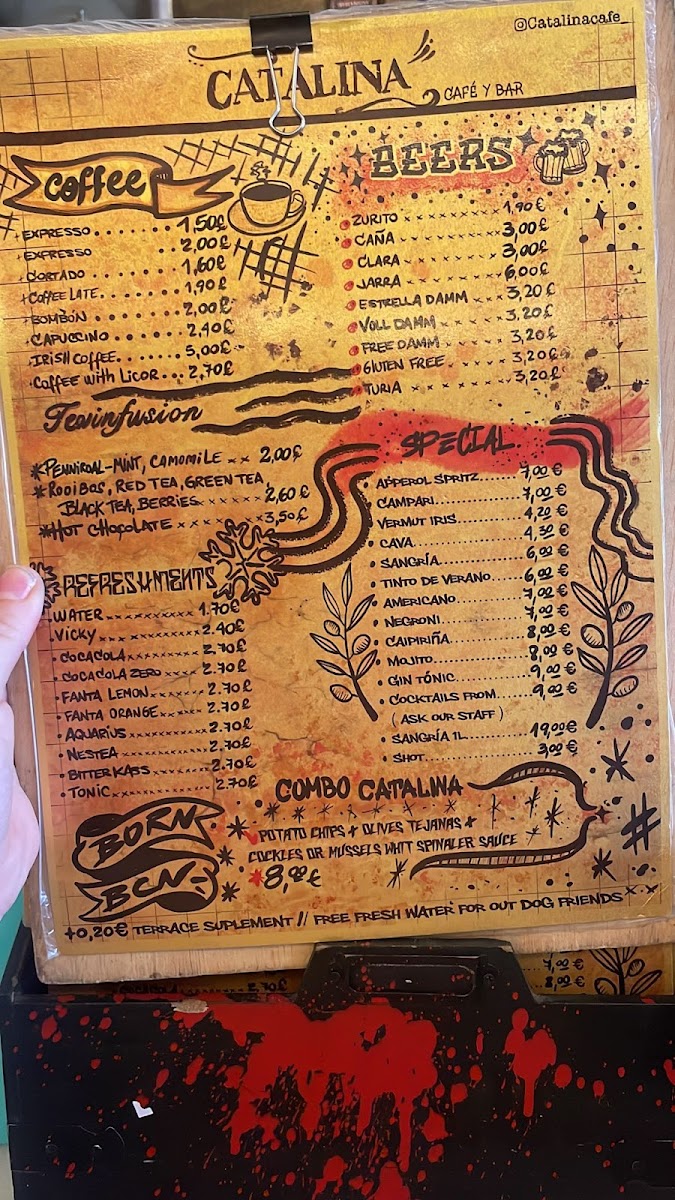 @Catalinacafe
CATALINA
CAFÉ Y BAR
Coffee
EXPRESSO 1,50£
EXPRESSO 2,00£
CORTADO 1,60£
COFFEE LATE 1,90£
BOMBÒN 2,00£
CAPUCCINO 2,40£
IRISH COFFEE 5,00£
COFFEE WITH LICOR 2,70£
Teainfusion
PENNIROAL-MINT, CAMOMILE 2,00£
ROOIBOS, RED TEA, GREEN TEA,
BLACK TEA, BERRIES 2,60£
HOT CHOCOLATE 3,50£
REFRESHMENTS
WATER 1.70€
VICKY 2.40€
COCACOLA 2,70£
COCACOLA ZERO 2.70£
FANTA LEMON 2.70£
FANTA ORANGE 2.70£
AQUARIUS 2.70£
NESTEA 2.70£
BITTER KASS 2.70£
TONIC 2.70£
BORN
BCN
BEERS
ZURITO 1,90€
CAÑA 3,00£
CLARA 3,00£
JARRA 6,00£
ESTRELLA DAMM 3,20£
VOLL DAMM 3,20£
FREE DAMM 3,20£
GLUTEN FREE 3,20£
TURIA 3,20£
SPECIAL
APPEROL SPRITZ 7,00€
CAMPARI 7,00€
VERMUT IRIS 4,20€
CAVA 4,30€
SANGRÍA 6,00€
TINTO DE VERANO 6,00€
AMERICANO 7,00€
NEGRONI 7,00€
CAIPIRIÑA 8,00€
MOJITO 8,00€
GIN TÓNIC 9,00€
COCKTAILS FROM 9,00€
(ASK OUR STAFF)
SANGRÍA 1L 19,00€
SHOT 3,00€
COMBO CATALINA
POTATO CHIPS + OLIVES TEJANAS +
COCKLES OR MUSSELS WHIT SPINALER SAUCE
8,00£
+0,20€ TERRACE SUPLEMENT // FREE FRESH WATER FOR OUT DOG FRIENDS
COCACOLA 2.70£
7,00€
8,00€